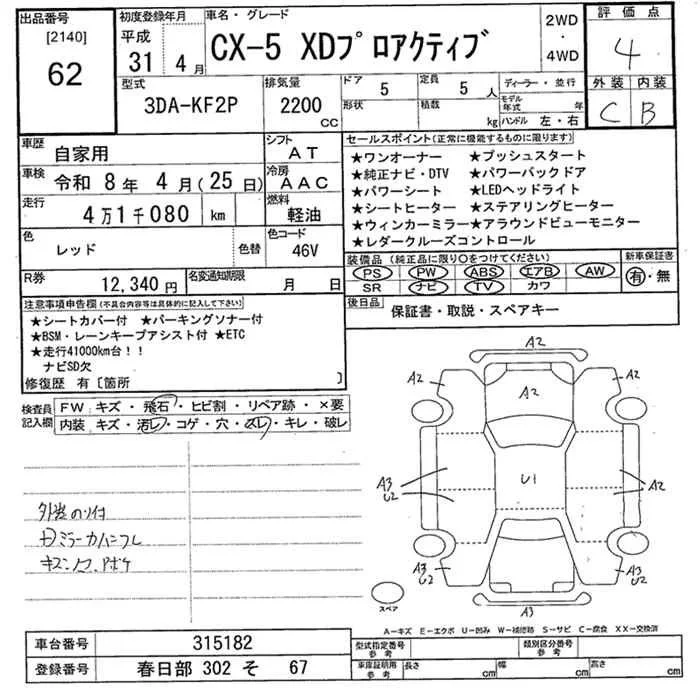 出品番号
[2140]
62
初度登録年月
平成
31 4 月
車名・グレード
CX-5 XDプロアクティブ
2WD
・
4WD
評価点
4
外装 内装
C B
型式
3DA-KF2P
排気量
2200
CC
ドア 5
形状
定員 5 人
積数 kg
ディーラー・並行
モデル年式 年
ハンドル 左・右
車歴
自家用
シフト
AT
車検
令和 8年 4月(25日)
冷房
AAC
走行
4万1千080 km
燃料
軽油
色
レッド
色替
色コード
46V
R券
12,340円
名変通知期限
月 日
セールスポイント(正常に機能するものに限ります)
★ワンオーナー ★プッシュスタート
★純正ナビ・DTV ★パワーバックドア
★パワーシート ★LEDヘッドライト
★シートヒーター ★ステアリングヒーター
★ウィンカーミラー★アラウンドビューモニター
★レダークルーズコントロール
装備品 (純正品に限り○をつけてください)
新車保証書
PS PW ABS エアB AW
有・無
SR ナビ TV カワ
後日品
保証書・取説・スペアキー
注意事項申告欄(不具合内容等は具体的に記入して下さい)
★シートカバー付 ★パーキングソナー付
★BSM・レーンキープアシスト付 ★ETC
★走行41000km台！！
ナビSD欠
修復歴 有[箇所 ]
検査員記入欄
FW キズ・飛石・ヒビ割・リペア跡・×要
内装 キズ・汚レ・コゲ・穴・スレ・キレ・破レ
A2
A2
A2
A2
A3
U2
U1
A2
A3
U2
A3
U2
A3
スペア
A-キズ E-エクボ U-凹み W-補修跡 S-サビ C-腐食 XX-交換済
車台番号
315182
登録番号
春日部 302 そ 67
型式指定番号
参考
類別区分番号
参考
車庫証明用
参考
長さ cm
幅 cm
高さ cm